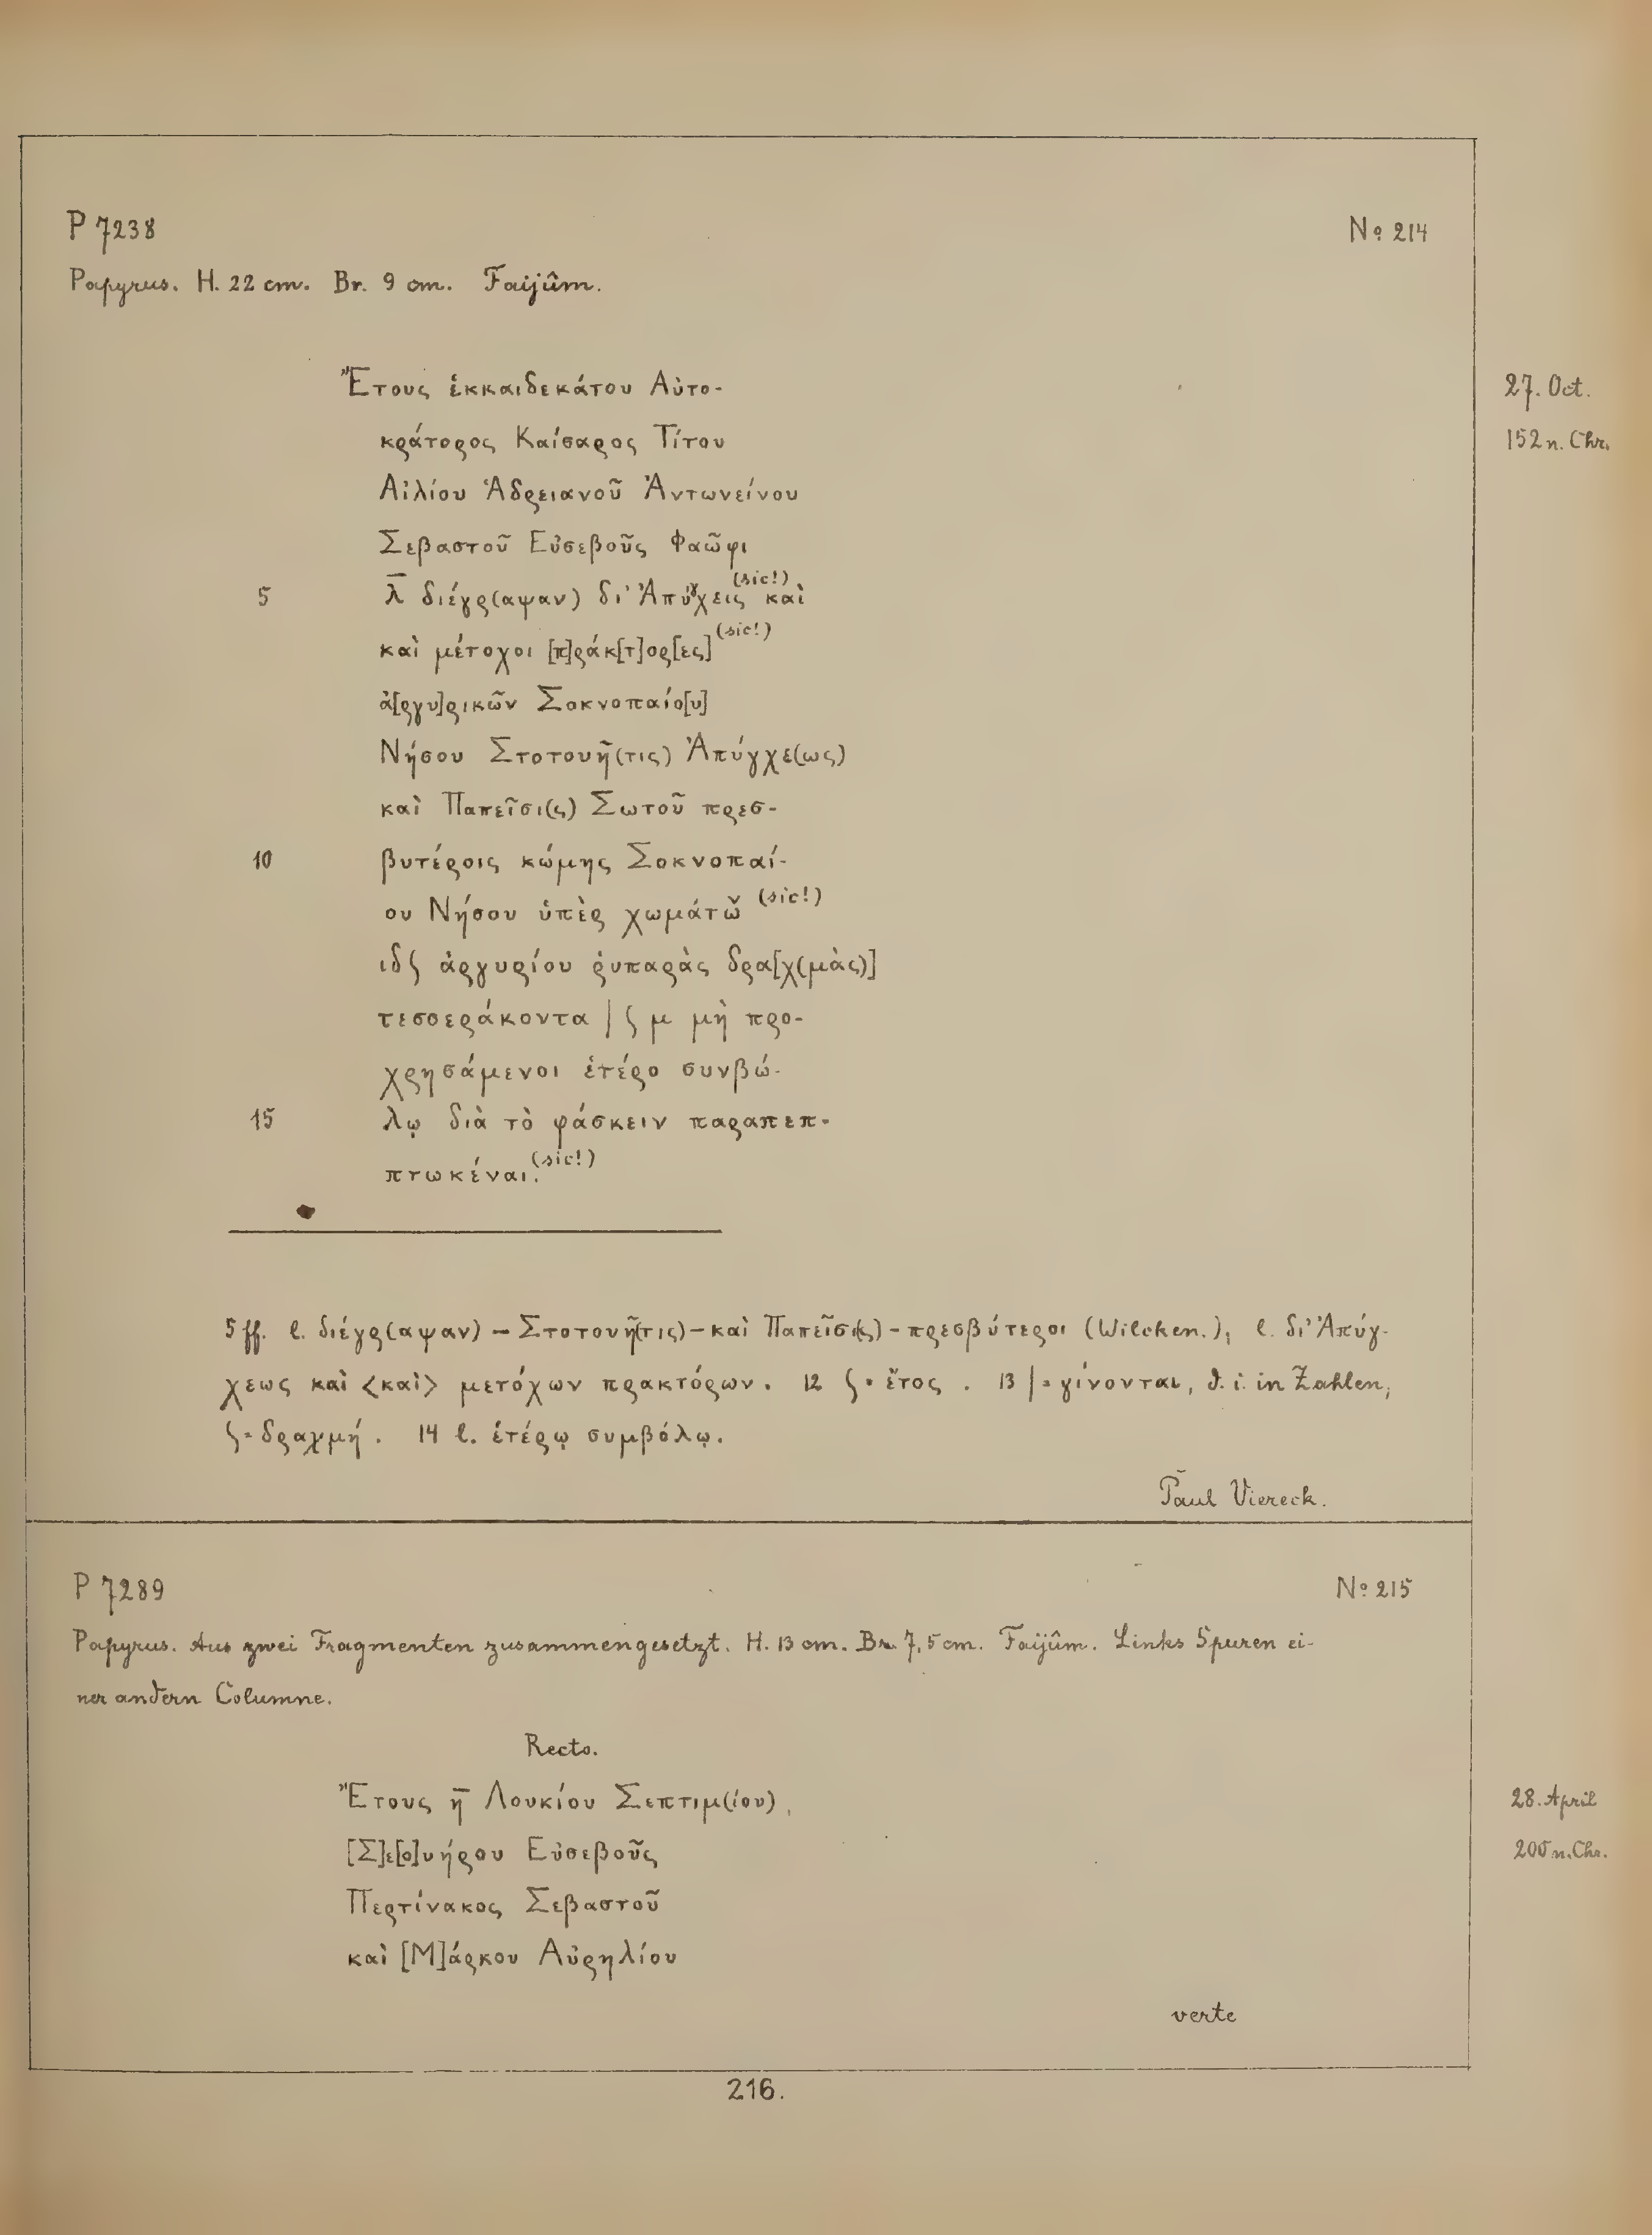 P 7238
No 214
Papyrus. H. 22 cm. Br. 9 cm. Faijûm.
Ἔτους ἑκκαιδεκάτου Αὐτο-
27. Oct.
κράτορος Καίσαρος Τίτου
152 n. Chr.
Αἰλίου Ἁδρειανοῦ Ἀντωνείνου
Σεβαστοῦ Εὐσεβοῦς Φαῶφι
5 λ̅ διέγρ(αψαν) δι' Ἀπύγχεις (sic!) καὶ
καὶ μέτοχοι [π]ράκ[τ]ορ[ες] (sic!)
ἀ[ργυ]ρικῶν Σοκνοπαίο[υ]
Νήσου Στοτουῆ(τις) Ἀπύγχε(ως)
καὶ Παπεῖσι(ς) Σωτοῦ πρεσ-
10 βυτέροις κώμης Σοκνοπαί-
ου Νήσου ὑπὲρ χωμάτω̆ (sic!)
ιδϛ ἀργυρίου ῥυπαρὰς δρα[χ(μὰς)]
τεσσεράκοντα | ϛ μ μὴ προ-
χρησάμενοι ἑτέρο συνβώ-
15 λῳ διὰ τὸ φάσκειν παραπεπ-
πτωκέναι. (sic!)
5 ff. l. διέγρ(αψαν) – Στοτουῆ(τις) – καὶ Παπεῖσι(ς) – πρεσβύτεροι (Wilcken.), l. δι' Ἀπύγ-
χεως καὶ <καὶ> μετόχων πρακτόρων. 12 ϛ = ἔτος. 13 | = γίνονται, d. i. in Zahlen,
ϛ = δραχμή. 14 l. ἑτέρῳ συμβόλῳ.
Paul Viereck.
P 7289
No 215
Papyrus. Aus zwei Fragmenten zusammengesetzt. H. 13 cm. Br. 7,5 cm. Faijûm. Links Spuren ei-
ner andern Columne.
Recto.
Ἔτους η̅ Λουκίου Σεπτιμ(ίου)
28. April
[Σ]ε[ο]υήρου Εὐσεβοῦς
200 n. Chr.
Περτίνακος Σεβαστοῦ
καὶ [Μ]άρκου Αὐρηλίου
verte
216.